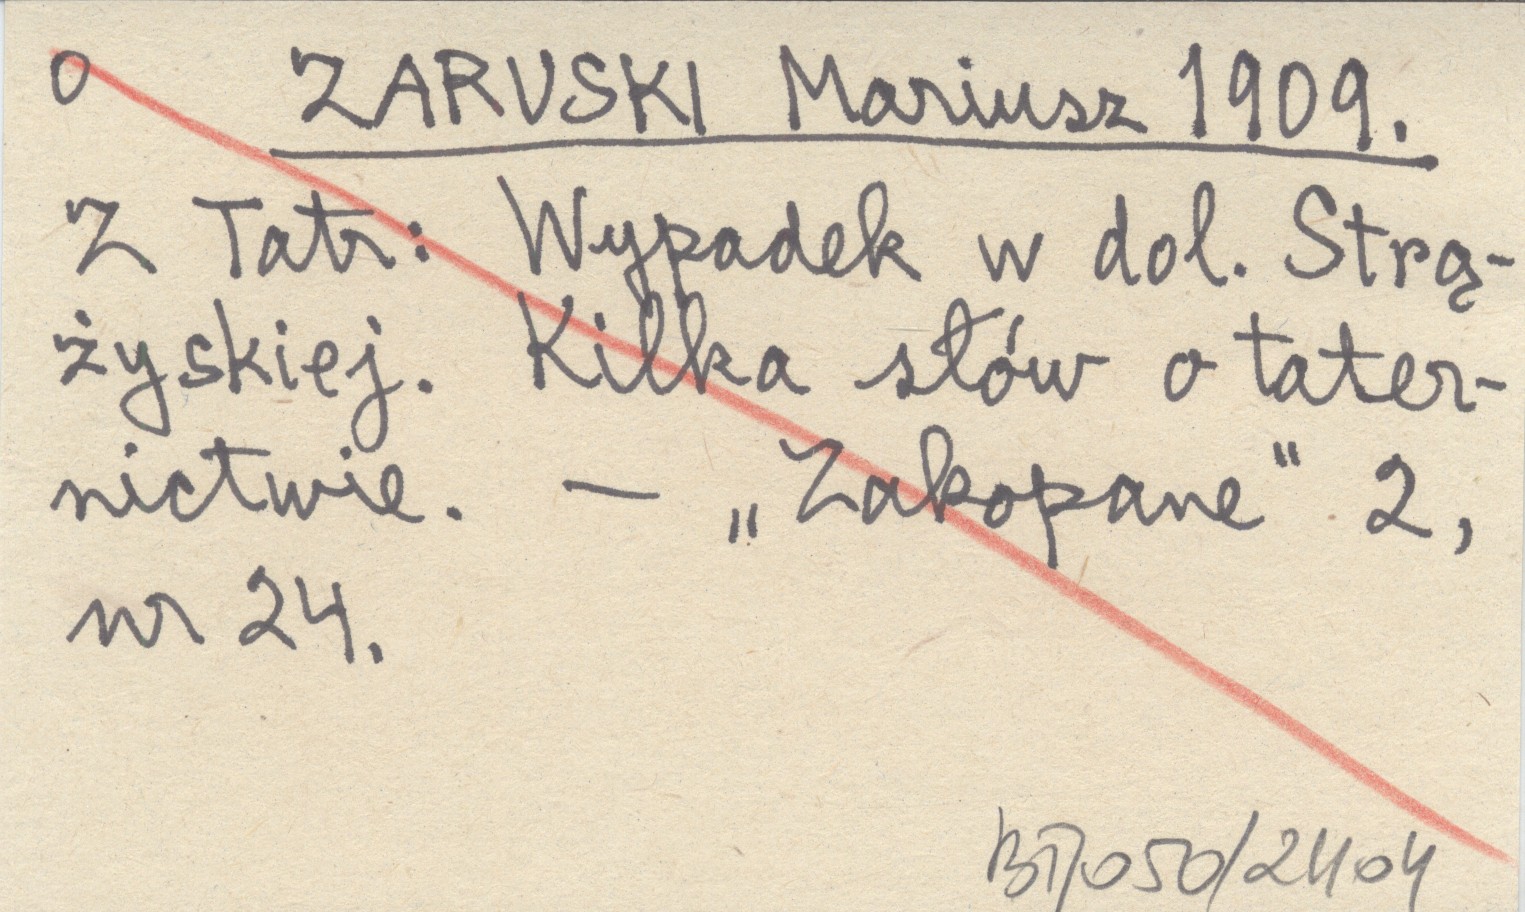 O ZARUSKI Mariusz 1909.
Z Tatr: Wypadek w dol. Strą-
żyskiej. Kilka słów o tater-
nictwie. — „Zakopane" 2,
nr 24.
BT/050/2404